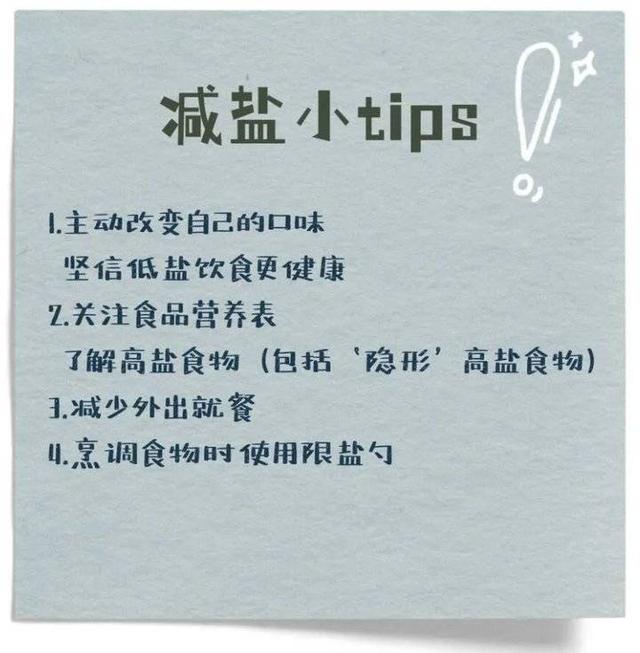 减盐小tips
1.主动改变自己的口味
坚信低盐饮食更健康
2.关注食品营养表
了解高盐食物（包括‘隐形’高盐食物）
3.减少外出就餐
4.烹调食物时使用限盐勺